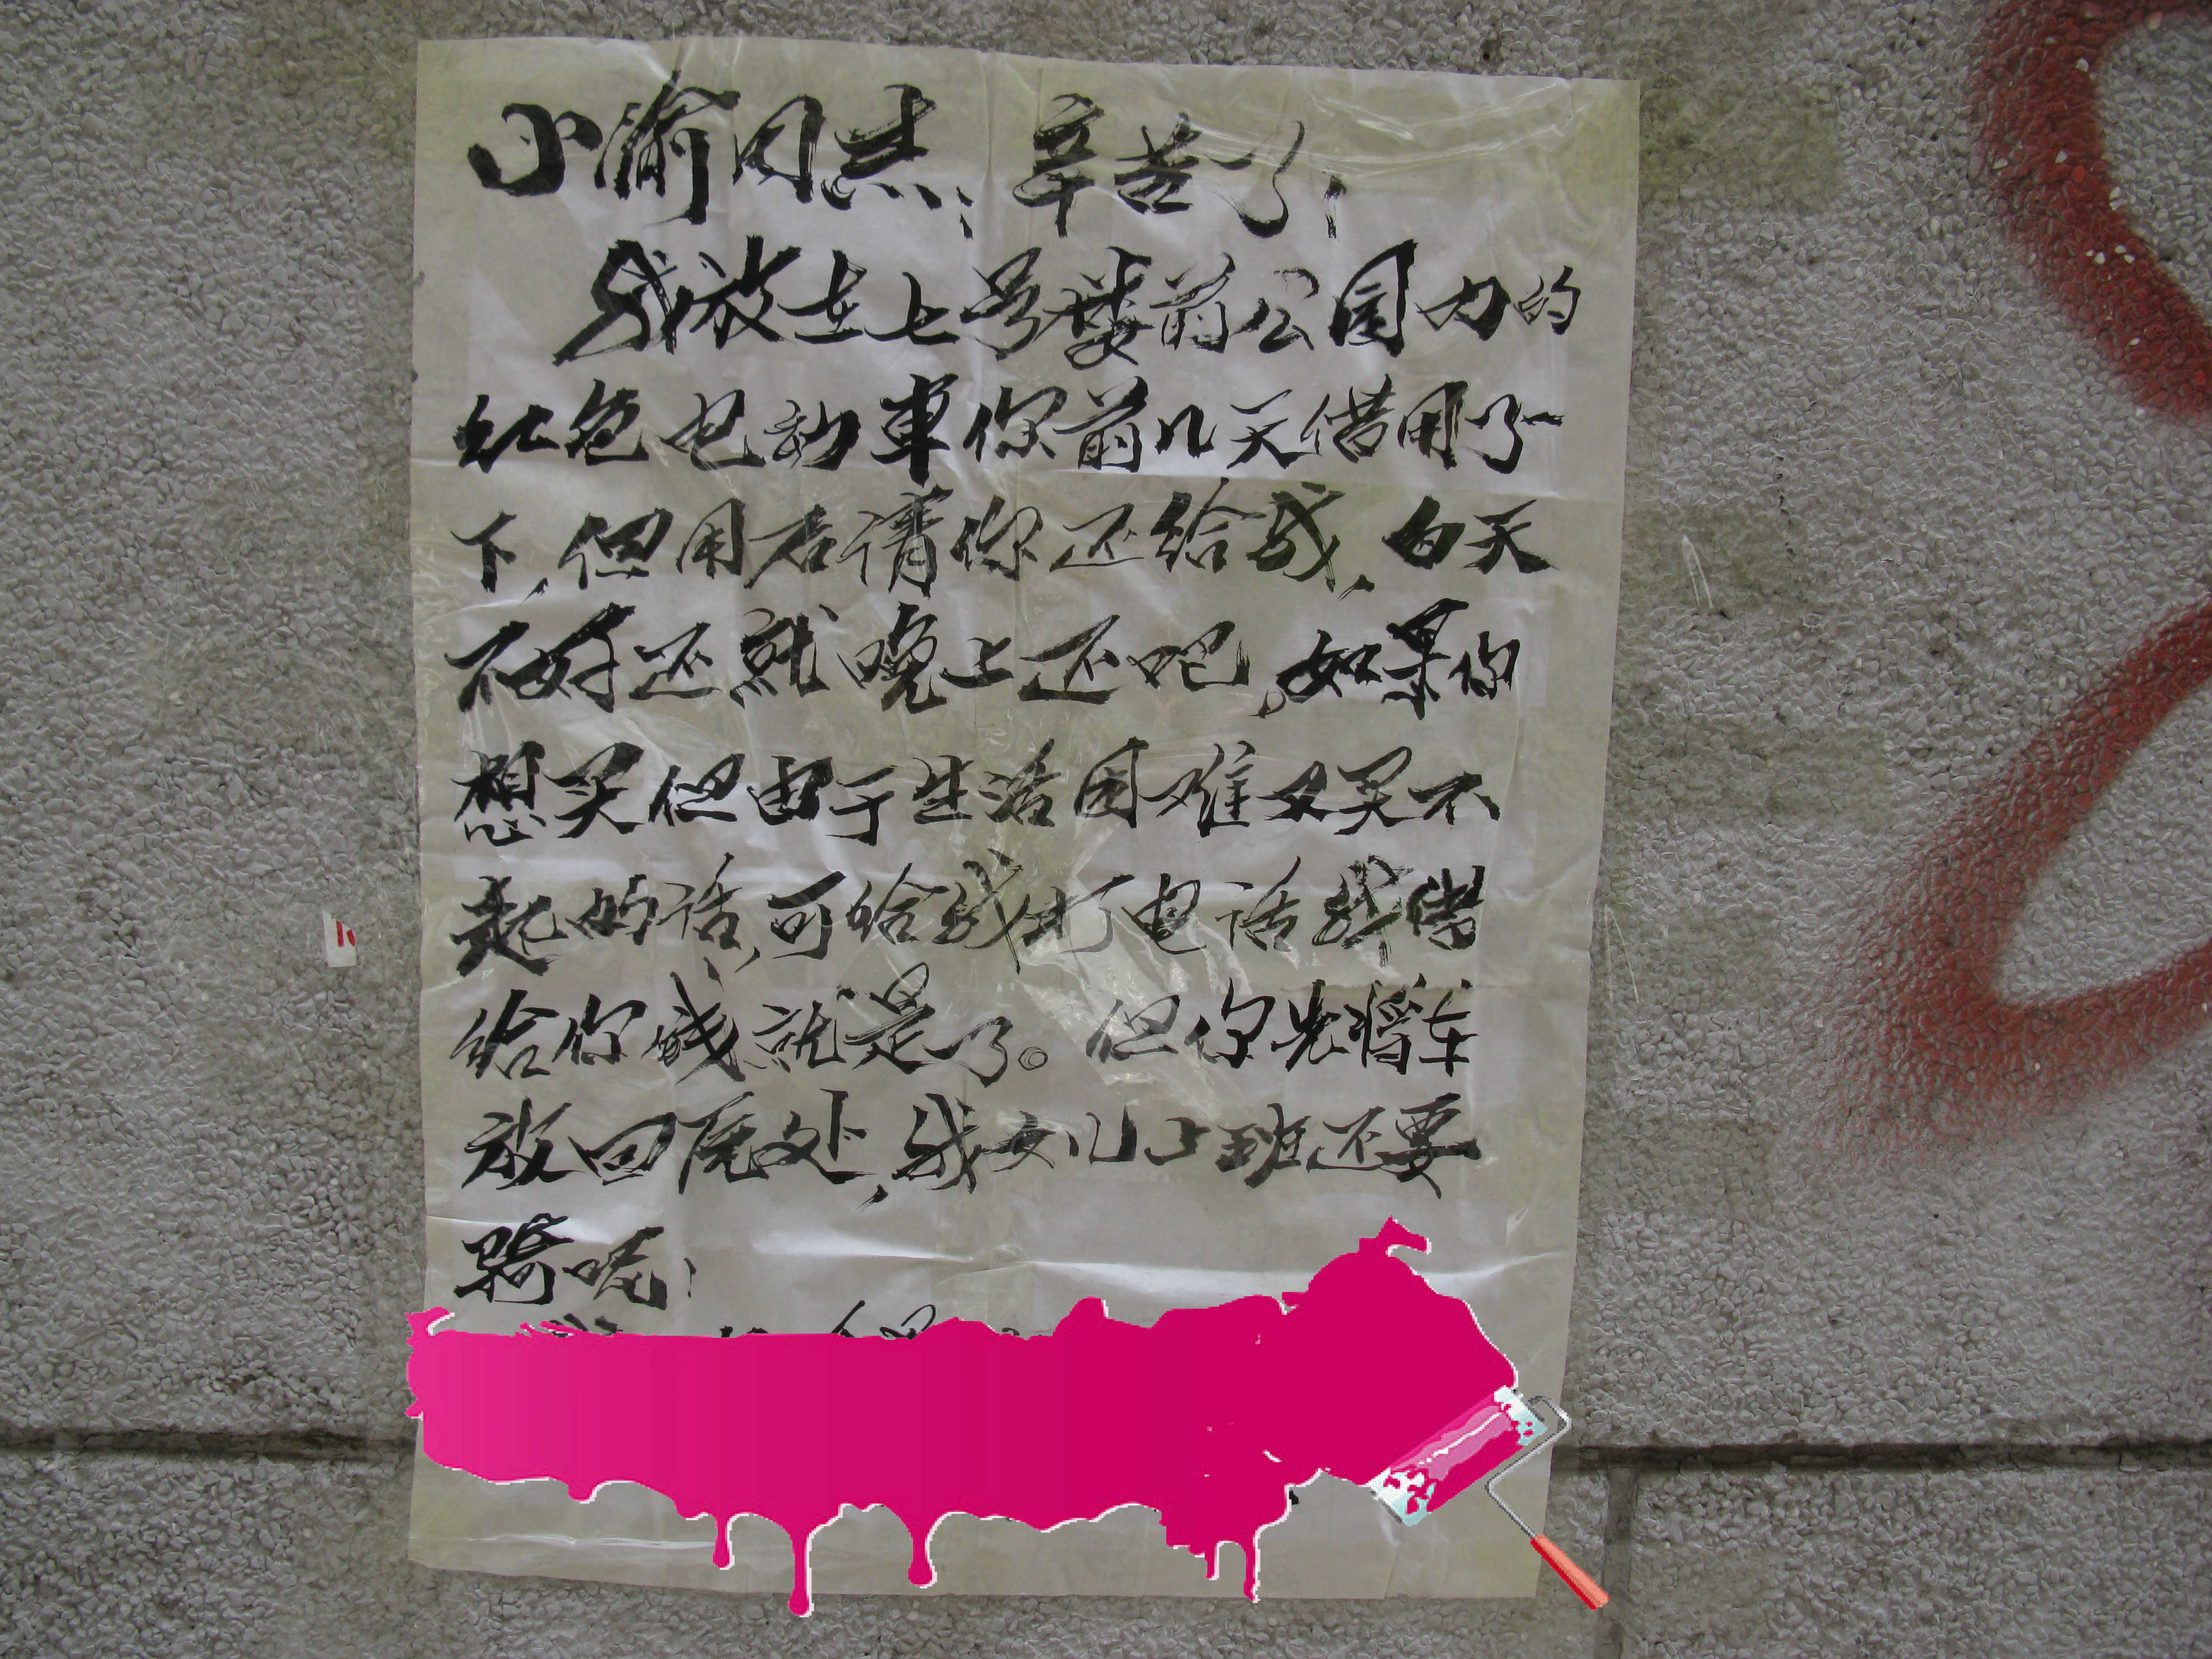 小偷同志：辛苦了！
我放在七号楼前公园力的
红色电动車你前几天借用了一
下，但用后请你还给我，白天
不好还就晚上还吧。如果你
想买但由于生活困难又买不
起的话，可给我打电话我借
给你钱就是了。但你先将车
放回原处，我女儿上班还要
骑呢！